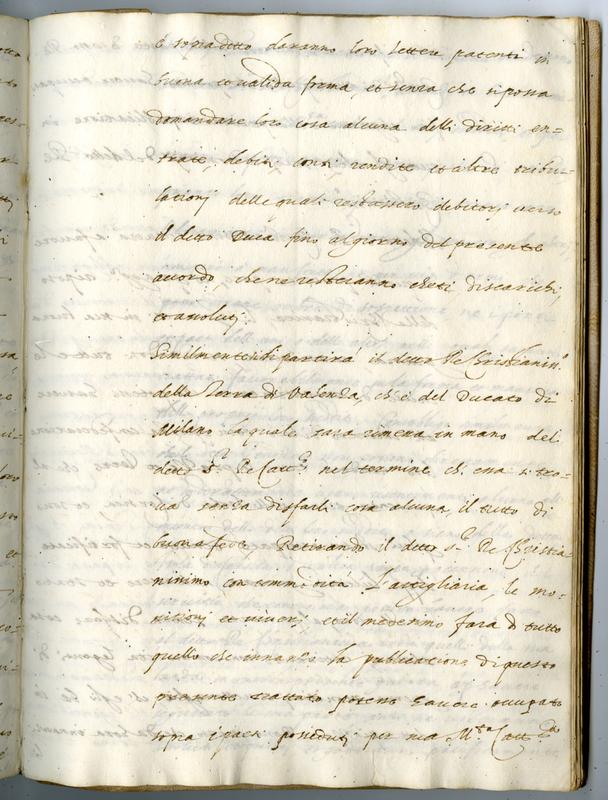 è sopradetto daranno loro lettere patenti in
buona et valida forma, et senza che si possa
domandare loro cosa alcuna delli diritti en=
trate, debiti, conti rendite et altre tribu=
lationi delle quali restassero debitori verso
il detto Duca fino al giorno del presente
accordo, che ne restaranno cheti discarichi,
et assoluti.
Similmente si partirà il detto Re Christianiss.º
della Terra di Valenza, ch'è del Ducato di
Milano la quale sarà rimessa in mano del
detto S.r Re Catt.co nel termine ch'essa si tro=
va senza disfarli cosa alcuna, il tutto di
buona fede. Retirando il detto S.r Re Christia=
nissimo con commodità l'artigliaria, le mo=
nitioni et viveri, et il medesimo farà di tutto
quello che innanzi la publicatione di questo
presente trattato potesse havere occupato
sopra i paesi posseduti per sua M.tà Catt.ca